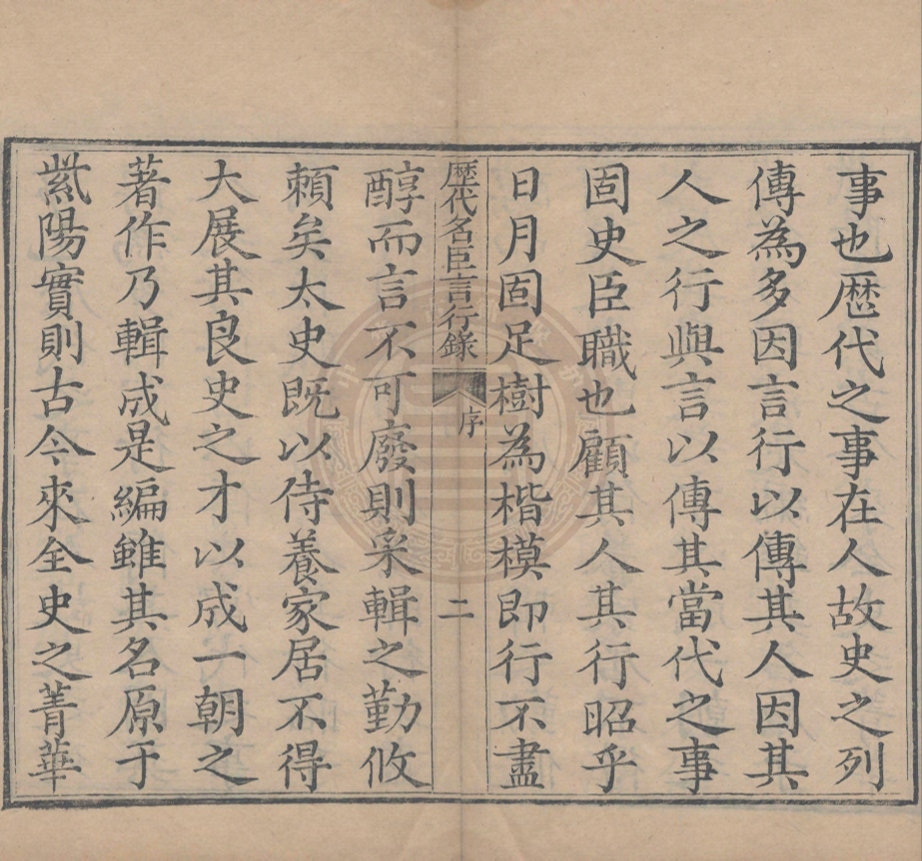 事也歴代之事在人故史之列
傳為多因言行以傳其人因其
人之行與言以傳其當代之事
固史臣職也顧其人其行昭乎
日月固足樹為楷模即行不盡
歴代名臣言行錄
序
二
醇而言不可廢則采輯之勤攸
頼矣太史既以侍養家居不得
大展其良史之才以成一朝之
著作乃輯成是編雖其名原于
紫陽實則古今來全史之菁華